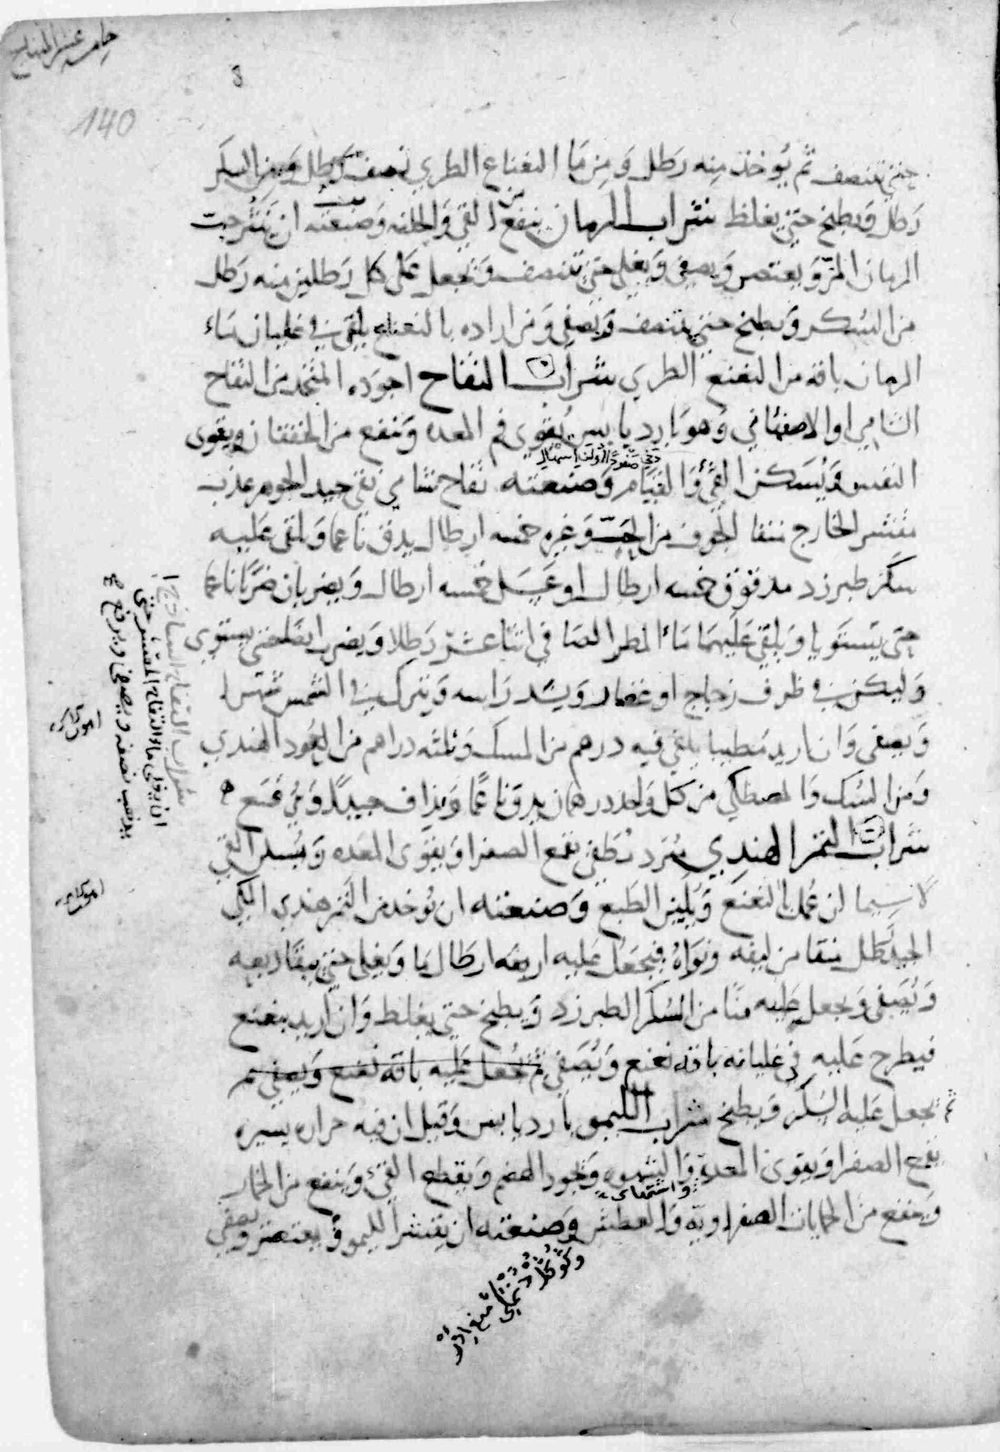 خامسة عشر المنهاج
140
حتى تنتصف ثم يوخذ منه رطل ومن ما النعناع الطري نصف رطل ومن السكر
رطل ويطبخ حتى يغلظ شراب الرمان ينفع من القى والخلفه وصنعته ان يقشر حب
الرمان المز ويعتصر ويصفى ويغلى حتى تنتصف وتجعل على كل رطلين منه رطل
من السكر ويطبخ حتى ينتصف ويصفى ومن اراده بالنعناع يلقى في غليان ماء
الرمان باقه من النعنع الطري شراب التفاح اجوده المتخذ من التفاح
الشامي او الاصفهاني وهو بارد يابس يقوى فم المعده وينفع من الخفقان ويقوى
النفس ويسكن القئ والقيام وصنعته تفاح شامي نقى جيد الجوهر عذب
مقشر الخارج منقا الجوف من الحب وغيره خمسه ارطال يدق ناعما ويلقى عليه
سكر طبرزد مدقوق خمسه ارطال او عسل خمسه ارطال ويضربان ضربا ناعما
حتى يستويا ويلقى عليهما ماء المطر الصافي اثنا عشر رطلا ويضرب ايضا حتى يستوي
وليكن في ظرف زجاج او غضار ويشد راسه ويترك في الشمس شهرا
ويصفى وان اريد مطيبا يلقى فيه درهم من المسك وثلثه دراهم من العود الهندي
ومن السك والمصطكي من كل واحد درهمان يدق ناعما ويداف جيدا ويرفع
شراب التمر الهندي مبرد مطفى يقمع الصفرا ويقوى المعده ويسكن القي
لا سيما ان عمل بالنعنع ويلين الطبع وصنعته ان يوخذ من التمر هندي المكي
الجيد رطل منقا من ليفه ونواه فيجعل عليه اربعه ارطال ما ويغلى حتى يبقا ربعه
ويصفى ويجعل عليه منا من السكر الطبرزد ويطبخ حتى يغلظ وان اريد بنعنع
فيطرح عليه في غليانه باقه نعنع ويصفى ثم يجعل عليه باقه نعنع ويصفى ثم
ثم يجعل عليه السكر ويطبخ شراب الليمو بارد يابس وقيل ان فيه حراره يسيره
يقمع الصفرا ويقوى المعده والشهوه ويجود الهضم ويقطع القئ وينفع من الخمار
وينفع من الحميات الصفراويه والعطش وصنعته ان يقشر الليمو ويعتصر ويصفى
شراب التفاح الساذج
ان يغلى ماء التفاح المقشر حتى
يذهب نصفه ويصفى ويرفع